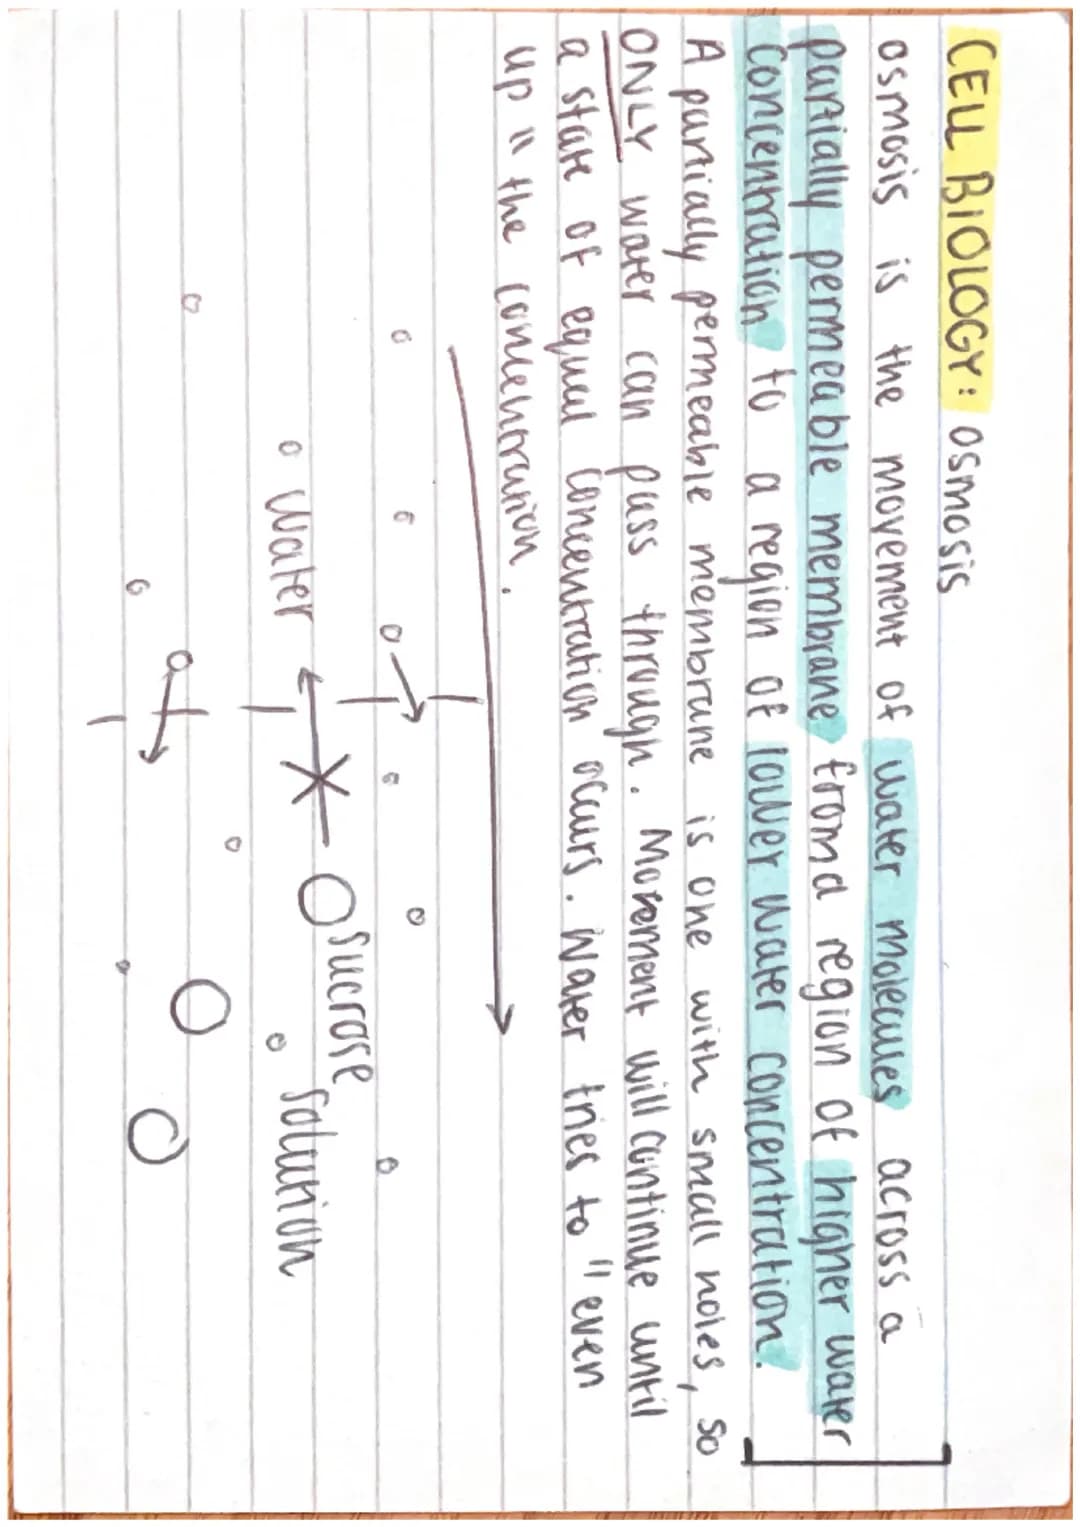 CELL BIOLOGY: osmosis
osmosis is the movement of water molecules across a
partially permeable membrane from a region of higher water
concentration to a region of lower water concentration.
A partially permeable membrane is one with small holes, so
ONLY water can pass through. Movement will continue until
a state of equal concentration occurs. Water tries to "even
up" the concentration.
Sucrose
Water
Solution